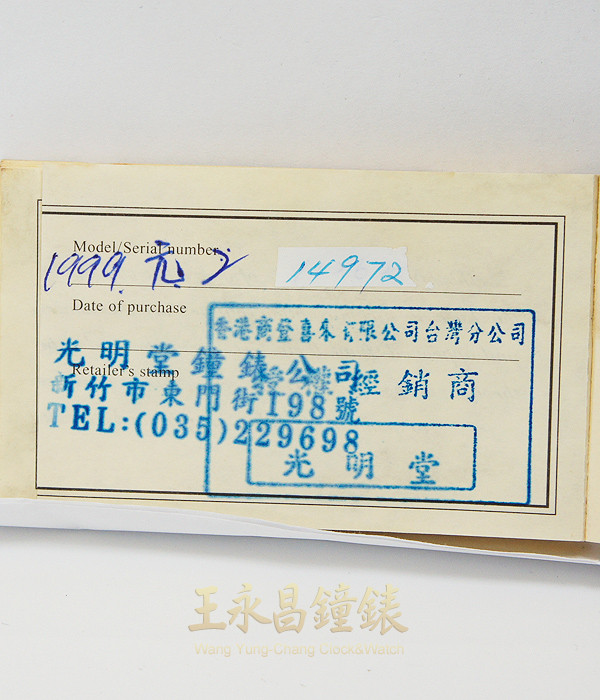 Model/Serial number
14972
1999. 元 2
Date of purchase
香港商登喜來有限公司台灣分公司
光明堂鐘錶公司
Retailer's stamp
經銷商
新竹市東門街198號
TEL:(035)229698
光明堂
王永昌鐘錶
Wang Yung-Chang Clock&Watch